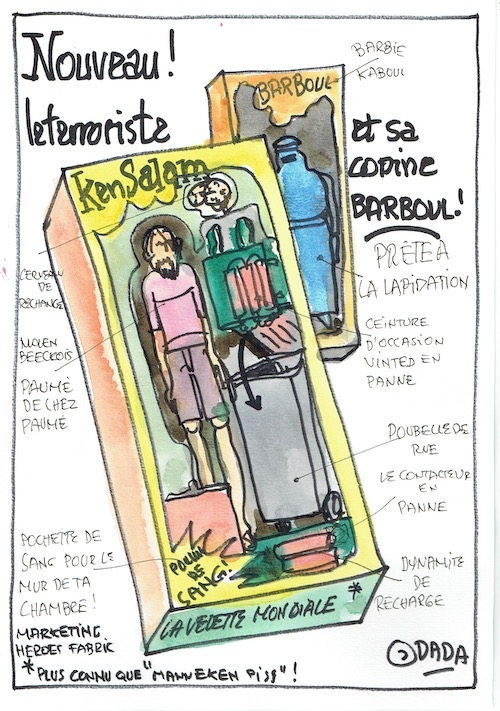 Nouveau!
le terroriste
BARBIE
KABOUL
BARBOUL
et sa
copine
BARBOUL!
KenSalam
PRÊTE À
LA LAPIDATION
CERVEAU
DE
RECHANGE
CEINTURE
D'OCCASION
VINTED EN
PANNE
MOLEN
BEECKOIS
PAUMÉ
DE CHEZ
PAUMÉ
POUBELLE DE
RUE
LE CONTACTEUR
EN
PANNE
POCHETTE DE
SANG POUR LE
MUR DE TA
CHAMBRE!
DE
SANG!
DYNAMITE
DE
RECHARGE
LA VEDETTE MONDIALE *
MARKETING
HEROES FABRIC
* PLUS CONNU QUE "MANNEKEN PISS"!
DADA